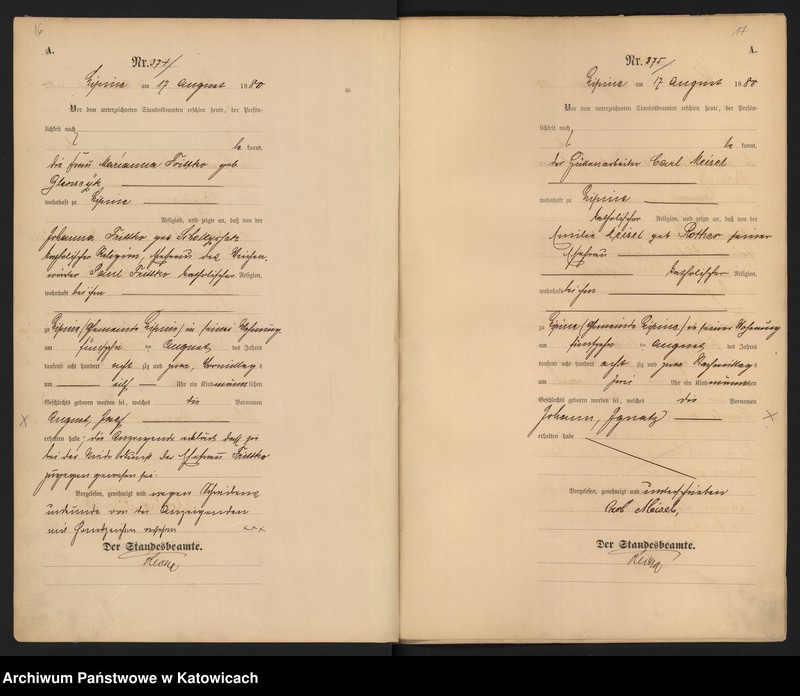 16
A.
Nr. 374
Lipine am 17 August 1880
Vor dem unterzeichneten Standesbeamten erschien heute, der Persön-
lichkeit nach
be kannt,
die Frau Marianna Frittko geb.
wohnhaft zu Lipine
Religion, und zeigte an, daß von der
Johanna Frittko geb
katholischer Religion, Ehefrau des
Paul Frittko katholischer Religion,
wohnhaft bei ihm
zu Lipine (Gemeinde Lipine) in seiner Wohnung
am fünfzehn ten August des Jahres
tausend acht hundert acht zig und Vormittag s
um Uhr ein Kind männlichen
Geschlechts geboren worden sei, welches die Vornamen
August, Josef
erhalten habe; die Anzeigende erklärt daß sie
bei der Niederkunft der Ehefrau Frittko
zugegen gewesen sei.
Vorgelesen, genehmigt und wegen
von der Anzeigenden
mit Handzeichen versehen xxx
Der Standesbeamte.
17
A.
Nr. 375
Lipine am 17 August 1880
Vor dem unterzeichneten Standesbeamten erschien heute, der Persön-
lichkeit nach
be kannt,
der Hüttenarbeiter Carl Meisel
wohnhaft zu Lipine
katholischer Religion, und zeigte an, daß von der
Emilie Meisel geb Rother seiner
Ehefrau
katholischer Religion,
wohnhaft bei ihm
zu Lipine (Gemeinde Lipine) in seiner Wohnung
am fünfzehn ten August des Jahres
tausend acht hundert acht zig und Nachmittag s
um Uhr ein Kind männlichen
Geschlechts geboren worden sei, welches die Vornamen
Johann, Ignatz
erhalten habe
Vorgelesen, genehmigt und unterschrieben
Carl Meisel,
Der Standesbeamte.
Archiwum Państwowe w Katowicach